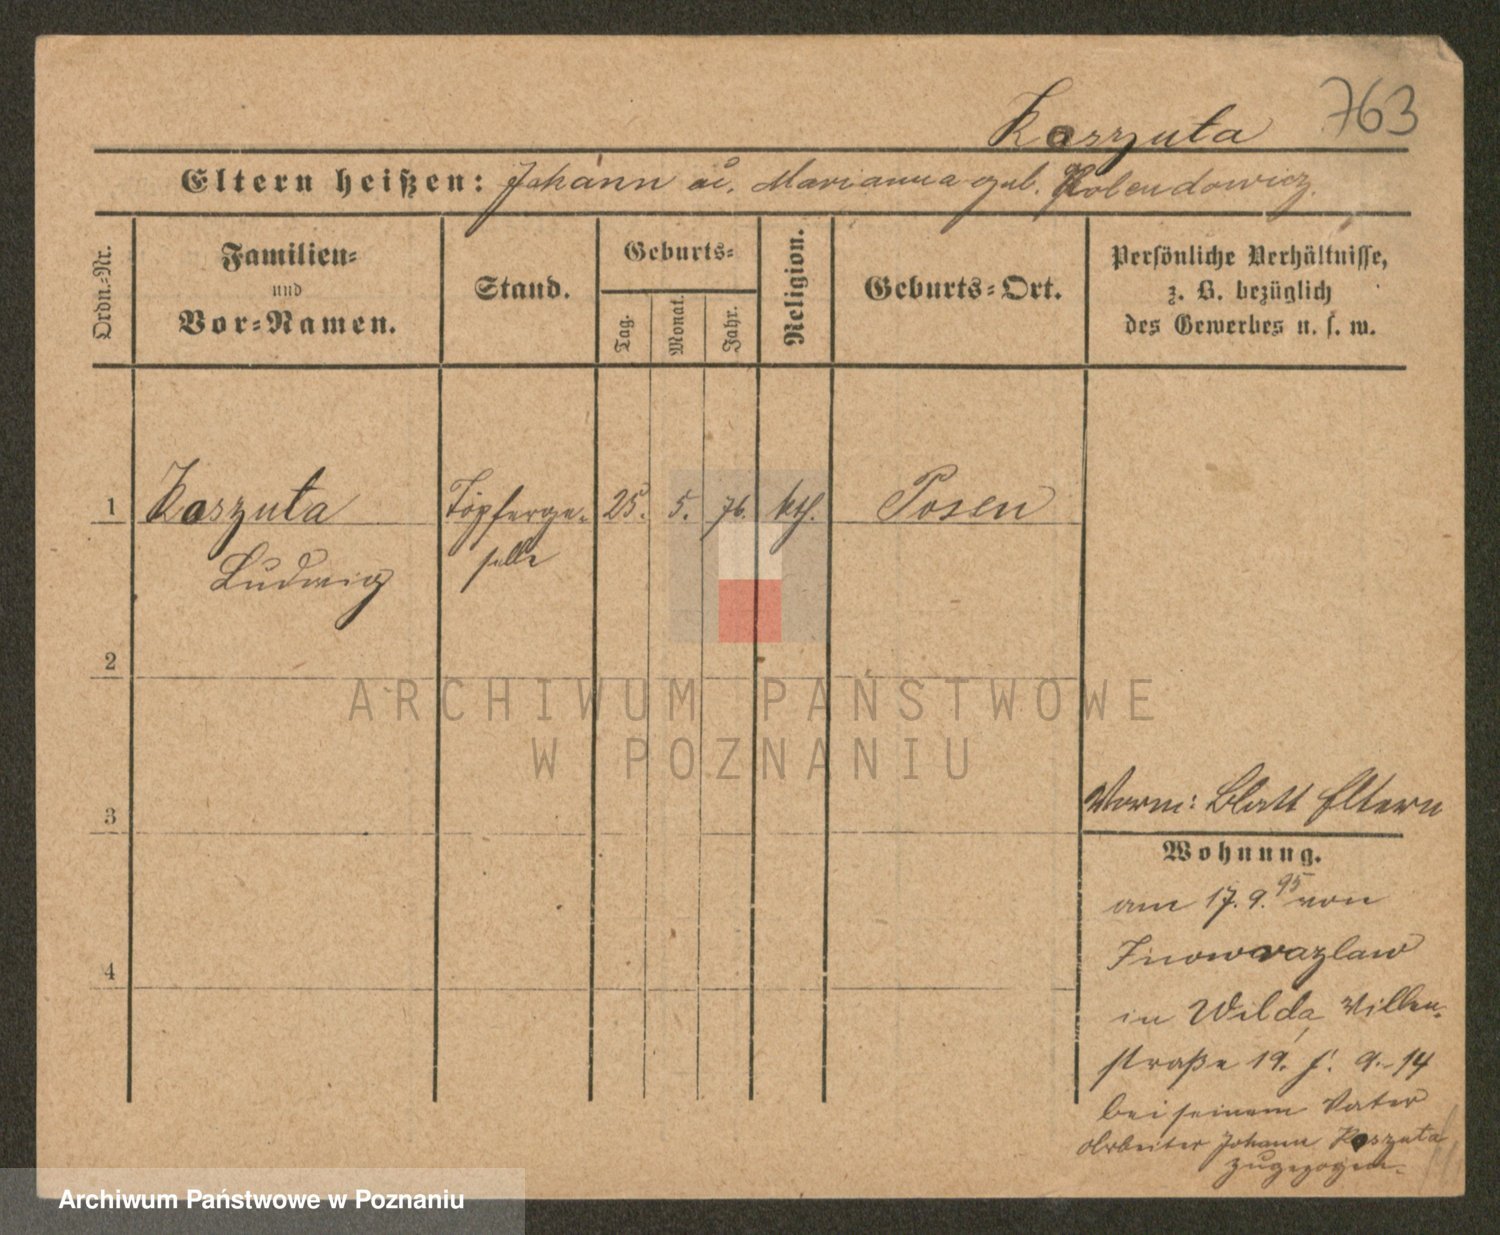 763
Koszuta
Eltern heißen: Johann u. Marianna geb. Kolendowicz.
Ordn.-Nr.
Familien-
und
Vor-Namen.
Stand.
Geburts-
Tag.
Monat.
Jahr.
Religion.
Geburts-Ort.
Persönliche Verhältnisse,
z. B. bezüglich
des Gewerbes u. s. w.
1 Koszuta Töpferge- 25. 5. 76. kth. Posen
Ludwig selle
2
ARCHIWUM PAŃSTWOWE
W POZNANIU
3
Vorm: Blatt Eltern
Wohnung.
4
am 17. 9. 95 von
Inowrazlaw
in Wilda, Villen-
straße 19. f. 9.-14
bei seinem Vater
Arbeiter Johann Koszuta
zugezogen.
Archiwum Państwowe w Poznaniu